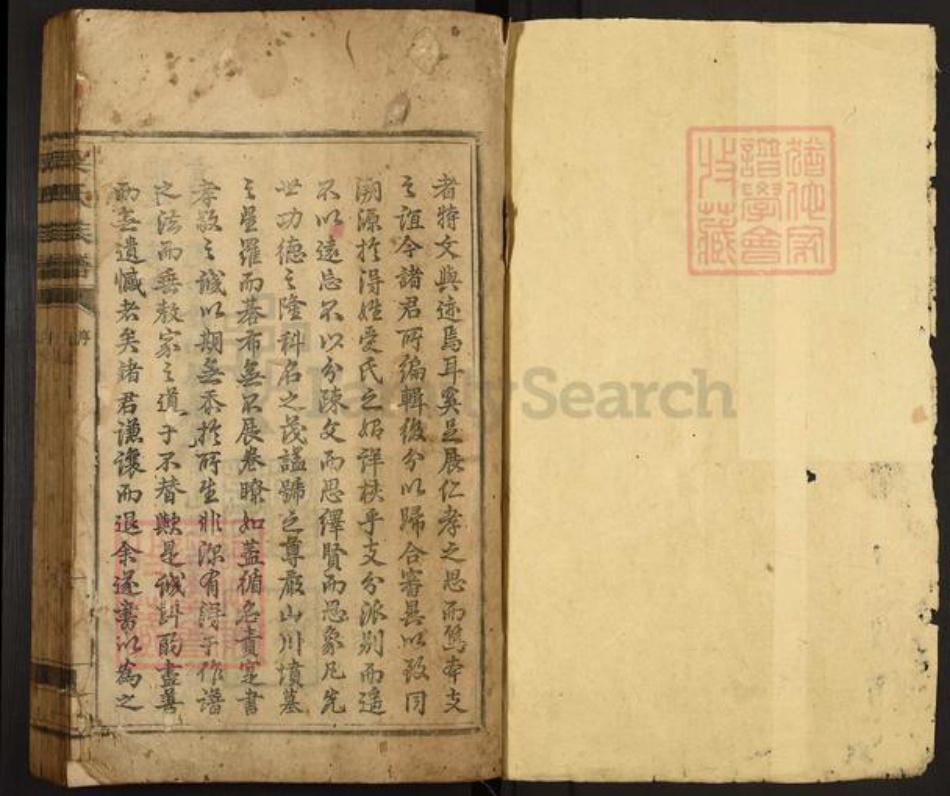 猶他家
譜學會
收藏
者特文與迹焉耳奚足展仁孝之思而篤本支
之誼今諸君所編輯後分以歸合審異以致同
溯源於得姓受氏之始詳核乎支分派別而遥
不以遠忘不以分疎文而思繹賢而思象凡先
世功德之隆科名之茂諡號之尊嚴山川墳墓
之星羅而碁布無不展卷瞭如蓋循名責寔書
孝敬之誠以期無忝於所生非深有得于作譜
之法而垂教家之道于不替歟是誠斟酌盡善
而無遺憾者矣諸君謙讓而退余遂書以為之
氏族譜
FamilySearch